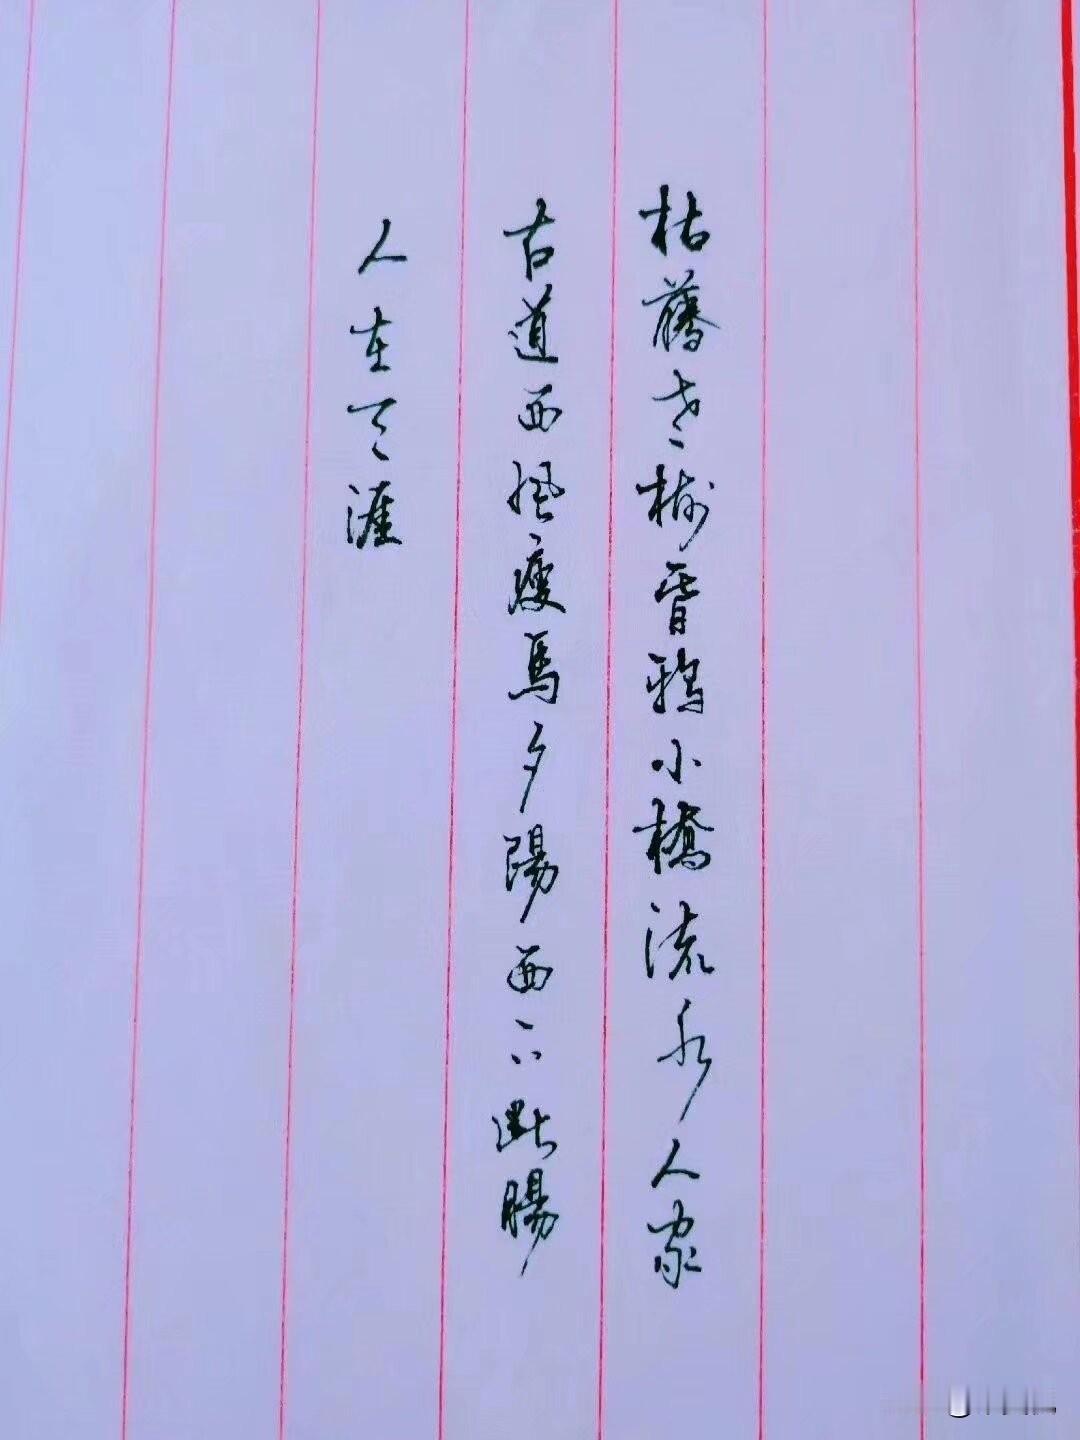 枯藤老樹昏鴉小橋流水人家
古道西風瘦馬夕陽西下斷腸
人在天涯